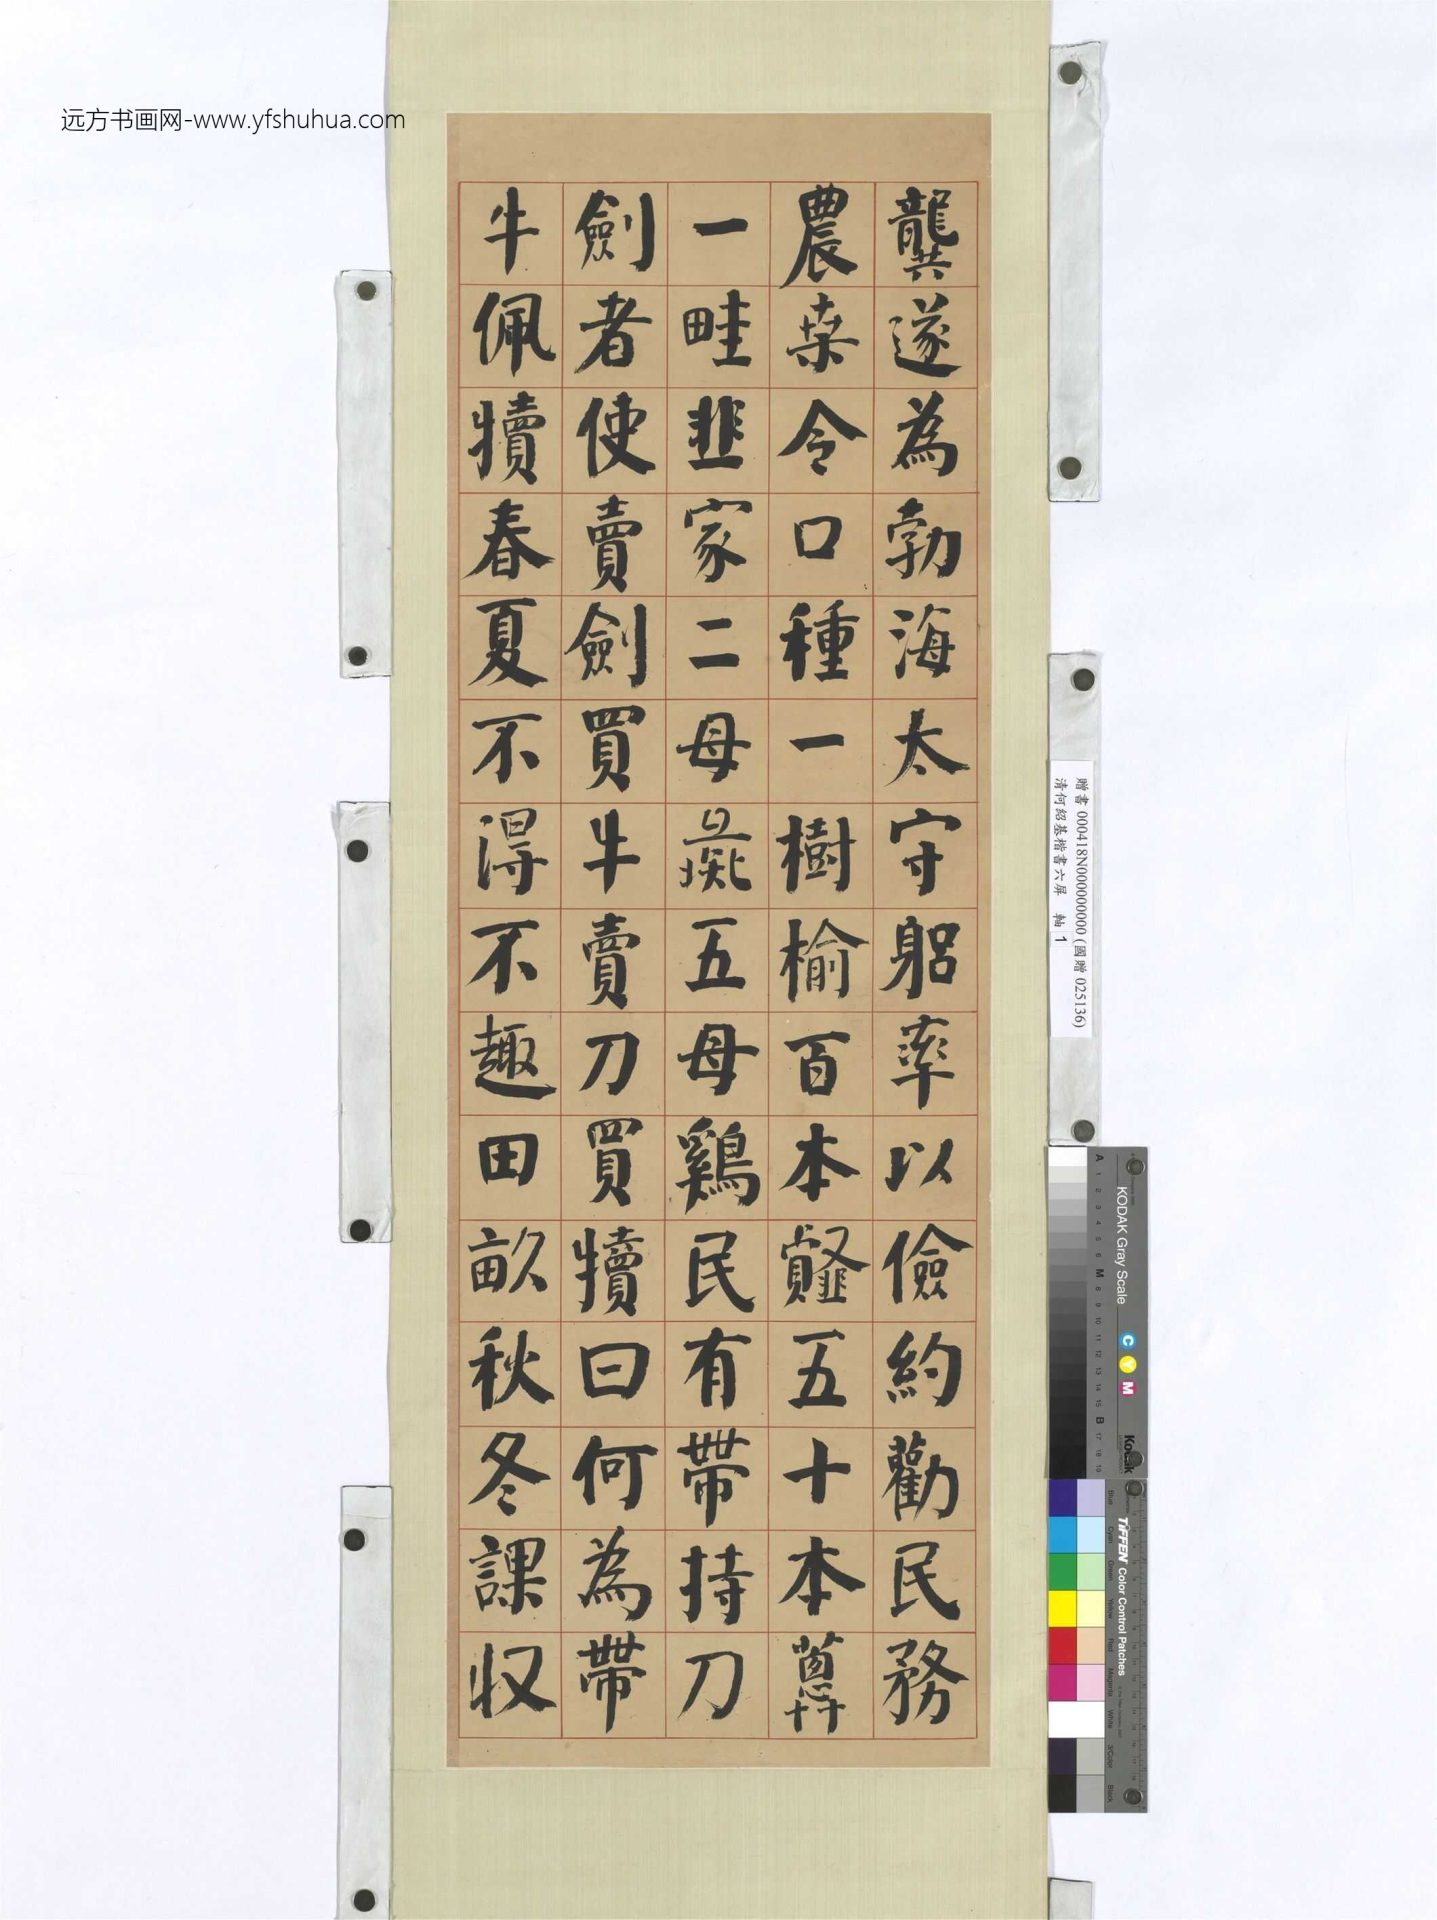 远方书画网-www.yfshuhua.com
龔遂為勃海太守躳率以儉約勸民務
農桒令口種一樹榆百本䪥五十本蔥
一畦韭家二母彘五母鷄民有帶持刀
劍者使賣劍買牛賣刀買犢曰何為帶
牛佩犢春夏不得不趣田畒秋冬課収
贈書 000418N000000000 (國贈 025136)
清何紹基楷書六屏 軸 1
KODAK Gray Scale
C Y M
Kodak
A 1 2 3 4 5 6 M 8 9 10 11 12 13 14 15 B 17 18 19
TIFFEN Color Control Patches
Blue Cyan Green Yellow Red Magenta White 3/Color Black